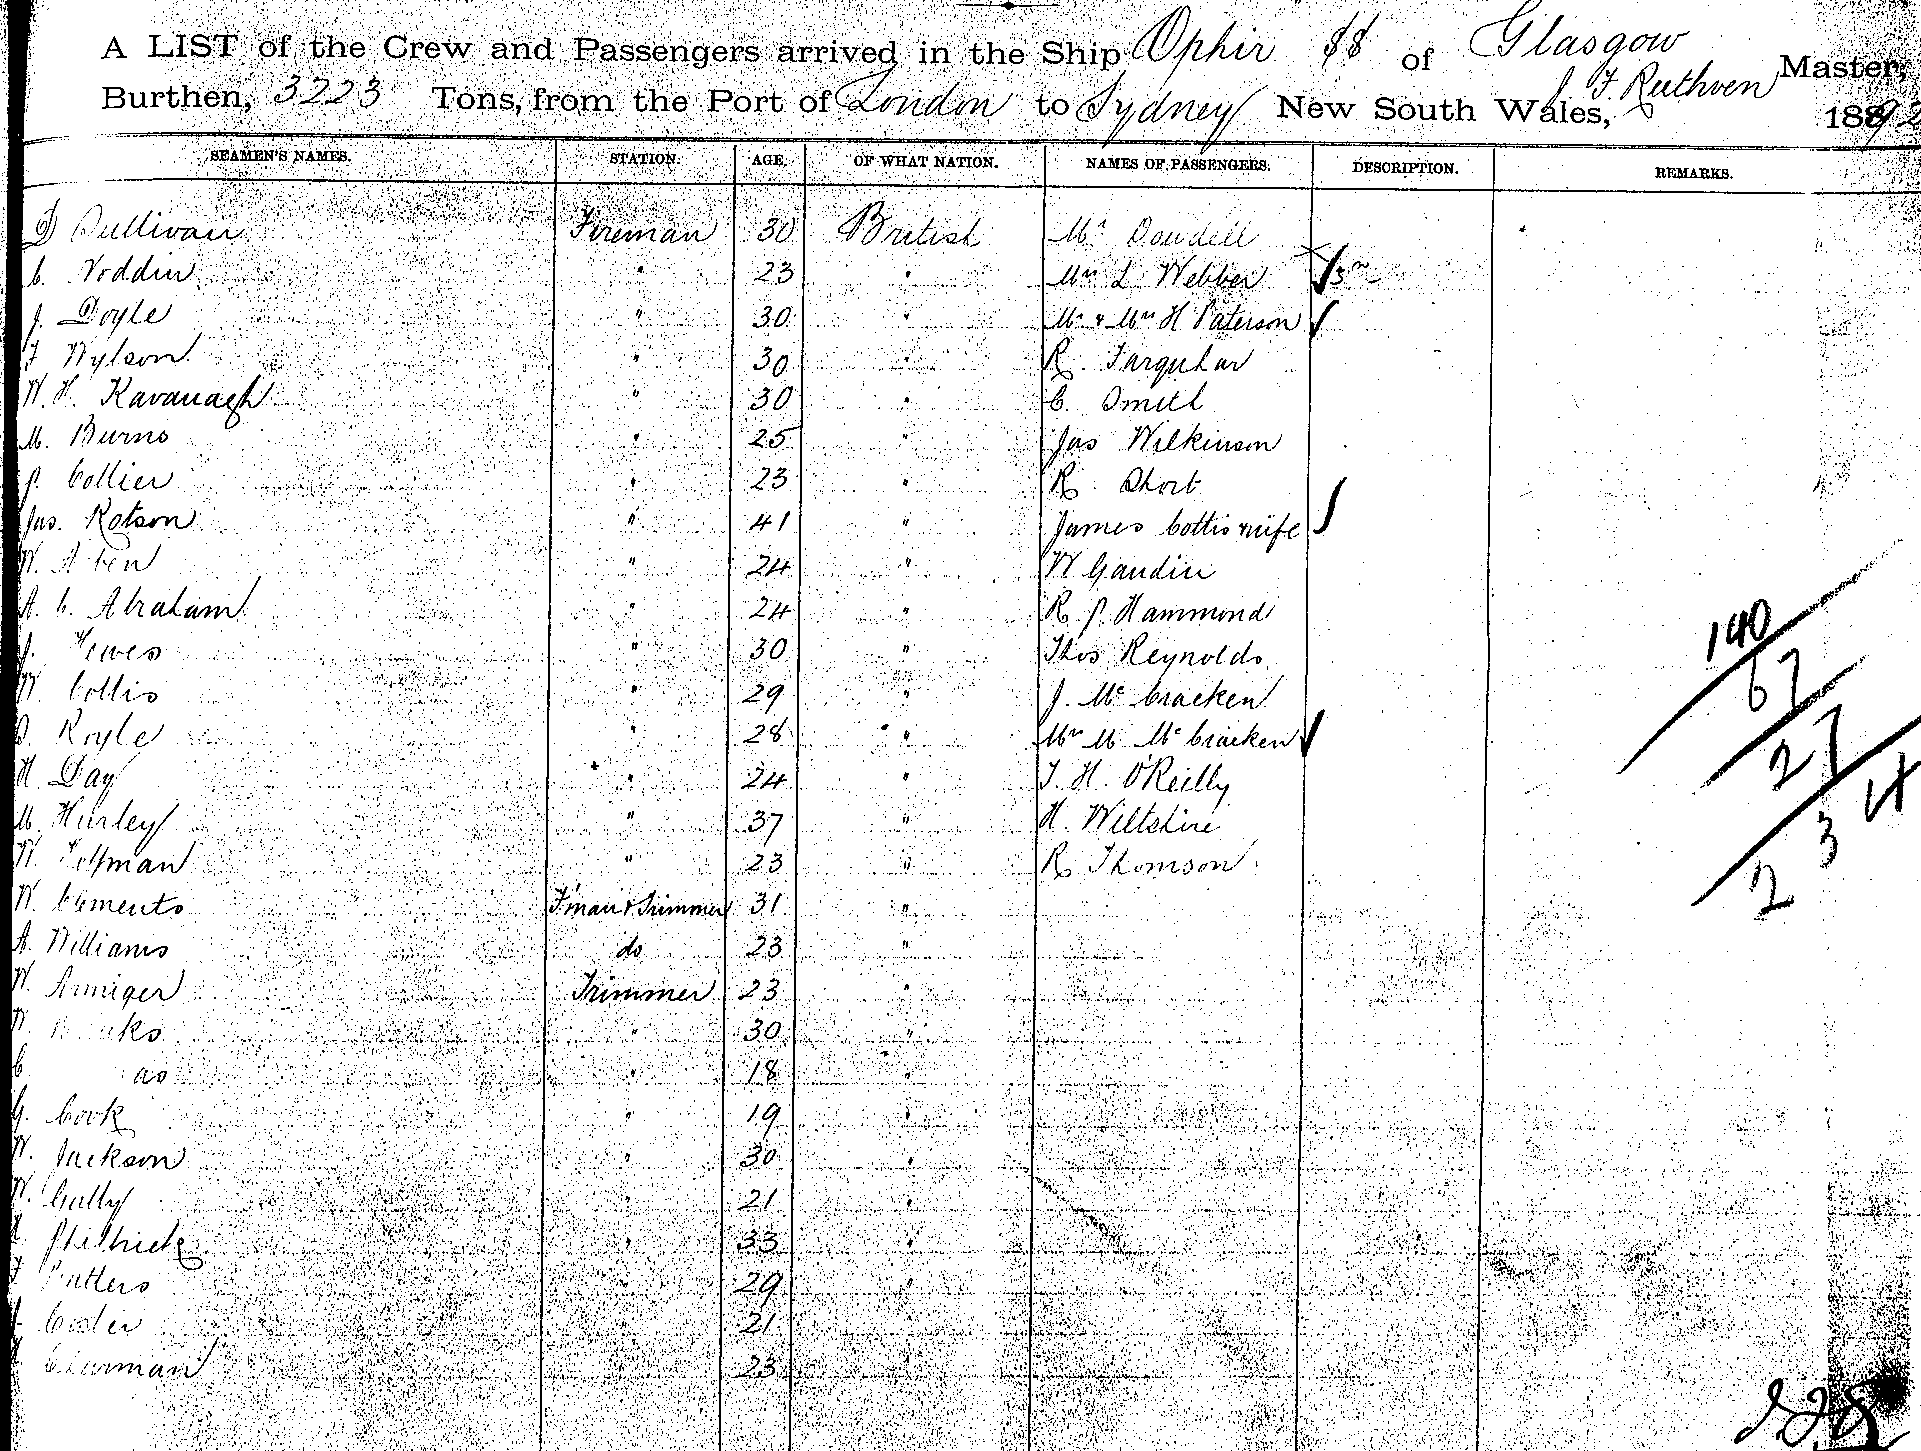 A LIST of the Crew and Passengers arrived in the Ship Ophir SS of Glasgow
J. F. Ruthven Master,
Burthen, 3223 Tons, from the Port of London to Sydney New South Wales, 1892
SEAMEN'S NAMES. STATION. AGE. OF WHAT NATION. NAMES OF PASSENGERS. DESCRIPTION. REMARKS.
D Sullivan Fireman 30 British Mr Dowdell
C. Noddin " 23 " Mrs L Webber
J. Doyle " 30 " Mr & Mrs H Paterson
F Wylson " 30 " R. Farquhar
W. H. Kavanagh " 30 " C. Smith
M. Burns " 25 " Jas Wilkinson
P. Collier " 23 " R. Short
Jas. Rotson " 41 " James Cottis & wife
W. " 24 " W Gaudin
A. C. Abraham " 24 " R P Hammond
J. Hewes " 30 " Thos Reynolds
W Collis " 29 " J. Mc Cracken
Royle " 28 " Mrs M Mc Cracken
H Day " 24 " T. H. O'Reilly
M. Hurley " 37 " H. Wiltshire
W. " 23 " R Thomson
W. Clements F'man & Trimmer 31 "
A. Williams do 23 "
W. Armiger Trimmer 23 "
W. " 30 "
C " 18 "
G. Cook " 19 "
W. Jackson " 30 "
W. Gully " 21 "
" 33 "
Butters " 29 "
" 21 "
" 23 "
140
67
27
3
2